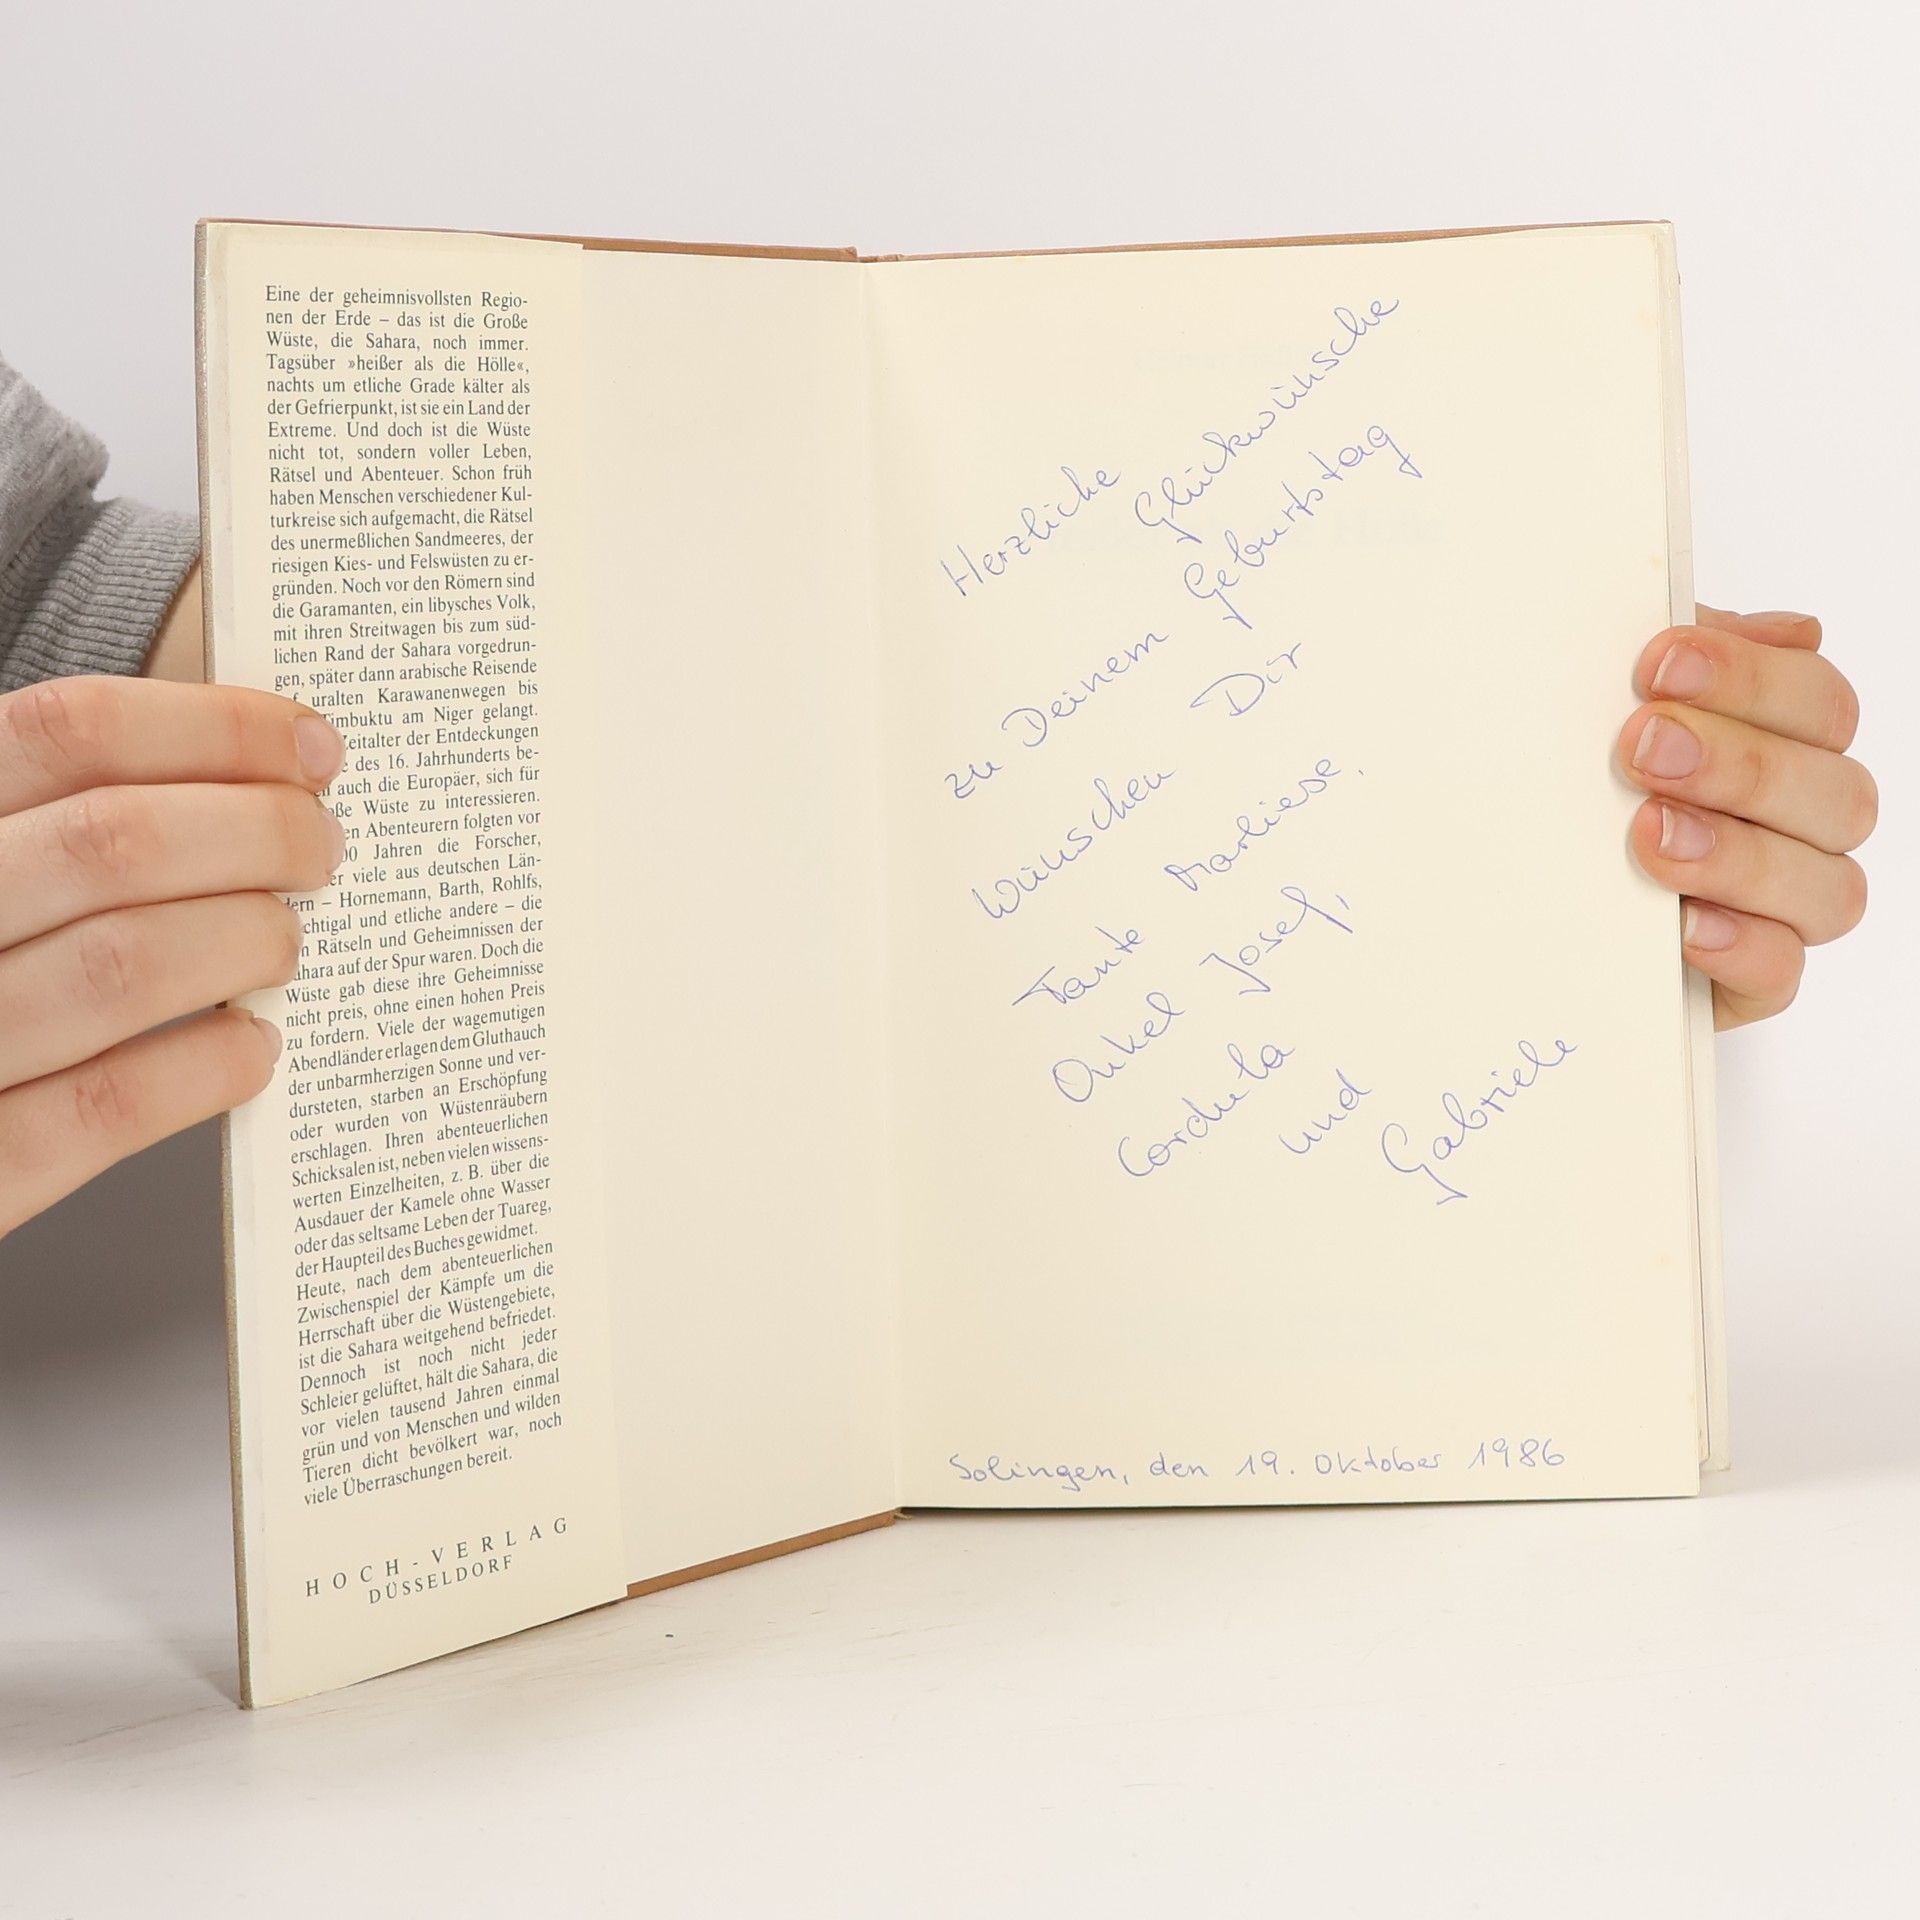 Eine der geheimnisvollsten Regio-
nen der Erde – das ist die Große
Wüste, die Sahara, noch immer.
Tagsüber »heißer als die Hölle«,
nachts um etliche Grade kälter als
der Gefrierpunkt, ist sie ein Land der
Extreme. Und doch ist die Wüste
nicht tot, sondern voller Leben,
Rätsel und Abenteuer. Schon früh
haben Menschen verschiedener Kul-
turkreise sich aufgemacht, die Rätsel
des unermeßlichen Sandmeeres, der
riesigen Kies- und Felswüsten zu er-
gründen. Noch vor den Römern sind
die Garamanten, ein libysches Volk,
mit ihren Streitwagen bis zum süd-
lichen Rand der Sahara vorgedrun-
gen, später dann arabische Reisende
uralten Karawanenwegen bis
Timbuktu am Niger gelangt.
Zeitalter der Entdeckungen
des 16. Jahrhunderts be-
auch die Europäer, sich für
Wüste zu interessieren.
Abenteurern folgten vor
Jahren die Forscher,
viele aus deutschen Län-
dern – Hornemann, Barth, Rohlfs,
und etliche andere – die
Rätseln und Geheimnissen der
Sahara auf der Spur waren. Doch die
Wüste gab diese ihre Geheimnisse
nicht preis, ohne einen hohen Preis
zu fordern. Viele der wagemutigen
Abendländer erlagen dem Gluthauch
der unbarmherzigen Sonne und ver-
dursteten, starben an Erschöpfung
oder wurden von Wüstenräubern
erschlagen. Ihren abenteuerlichen
Schicksalen ist, neben vielen wissens-
werten Einzelheiten, z. B. über die
Ausdauer der Kamele ohne Wasser
oder das seltsame Leben der Tuareg,
der Hauptteil des Buches gewidmet.
Heute, nach dem abenteuerlichen
Zwischenspiel der Kämpfe um die
Herrschaft über die Wüstengebiete,
ist die Sahara weitgehend befriedet.
Dennoch ist noch nicht jeder
Schleier gelüftet, hält die Sahara, die
vor vielen tausend Jahren einmal
grün und von Menschen und wilden
Tieren dicht bevölkert war, noch
viele Überraschungen bereit.
HOCH-VERLAG
DÜSSELDORF
Herzliche Glückwünsche
zu Deinem Geburtstag
wünschen Dir
Tante Marliese,
Onkel Josef,
Cordula
und
Gabriele
Solingen, den 19. Oktober 1986